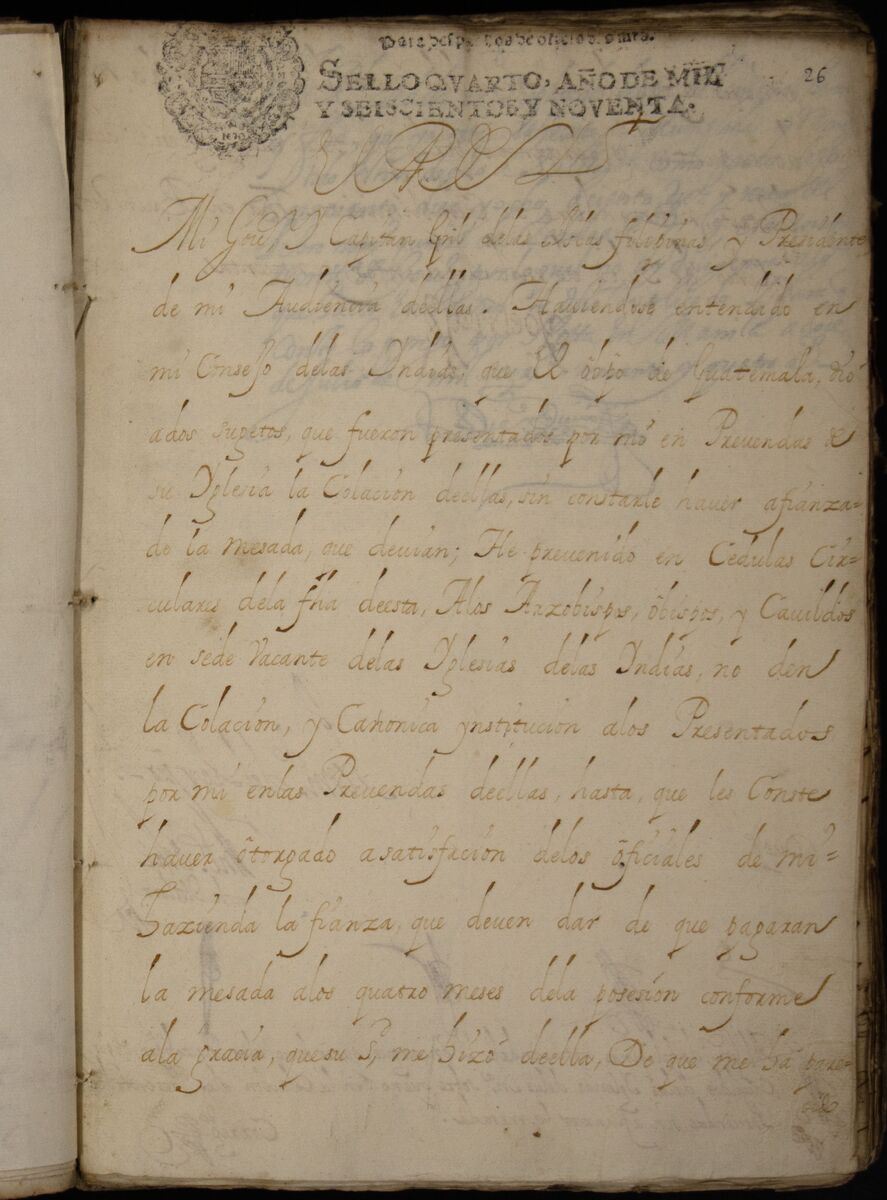 Para despachos de oficio dos mrs.
SELLO QVARTO, AÑO DE MIL
Y SEISCIENTOS Y NOVENTA.
26
El Rey
Mi Gov.or, Y Capitan Grl delas Islas filipinas, y Presidente
de mi Audiencia deellas. Haviendose entendido en
mi Consejo delas Indias, que El obpo de Guatemala, dio
ados sugetos, que fueron presentados por mi en Prevendas de
su Yglesia la Colacion deellas, sin constarle haver afianza=
do la mesada, que devian; He prevenido en Cedulas Cir=
culares dela fha deesta, Alos Arzobispos, obispos, y Cavildos
en sede vacante delas Yglesias delas Indias, no den
la Colacion, y Canonica ynstitucion alos Presentados
por mi enlas Prevendas deellas, hasta, que les Conste
haver otorgado asatisfacion delos oficiales de mi=
hazienda la fianza, que deven dar de que pagaran
la mesada alos quatro meses dela posesion conforme
ala gracia, que su Sd, me hizo deella, De que me ha pare=